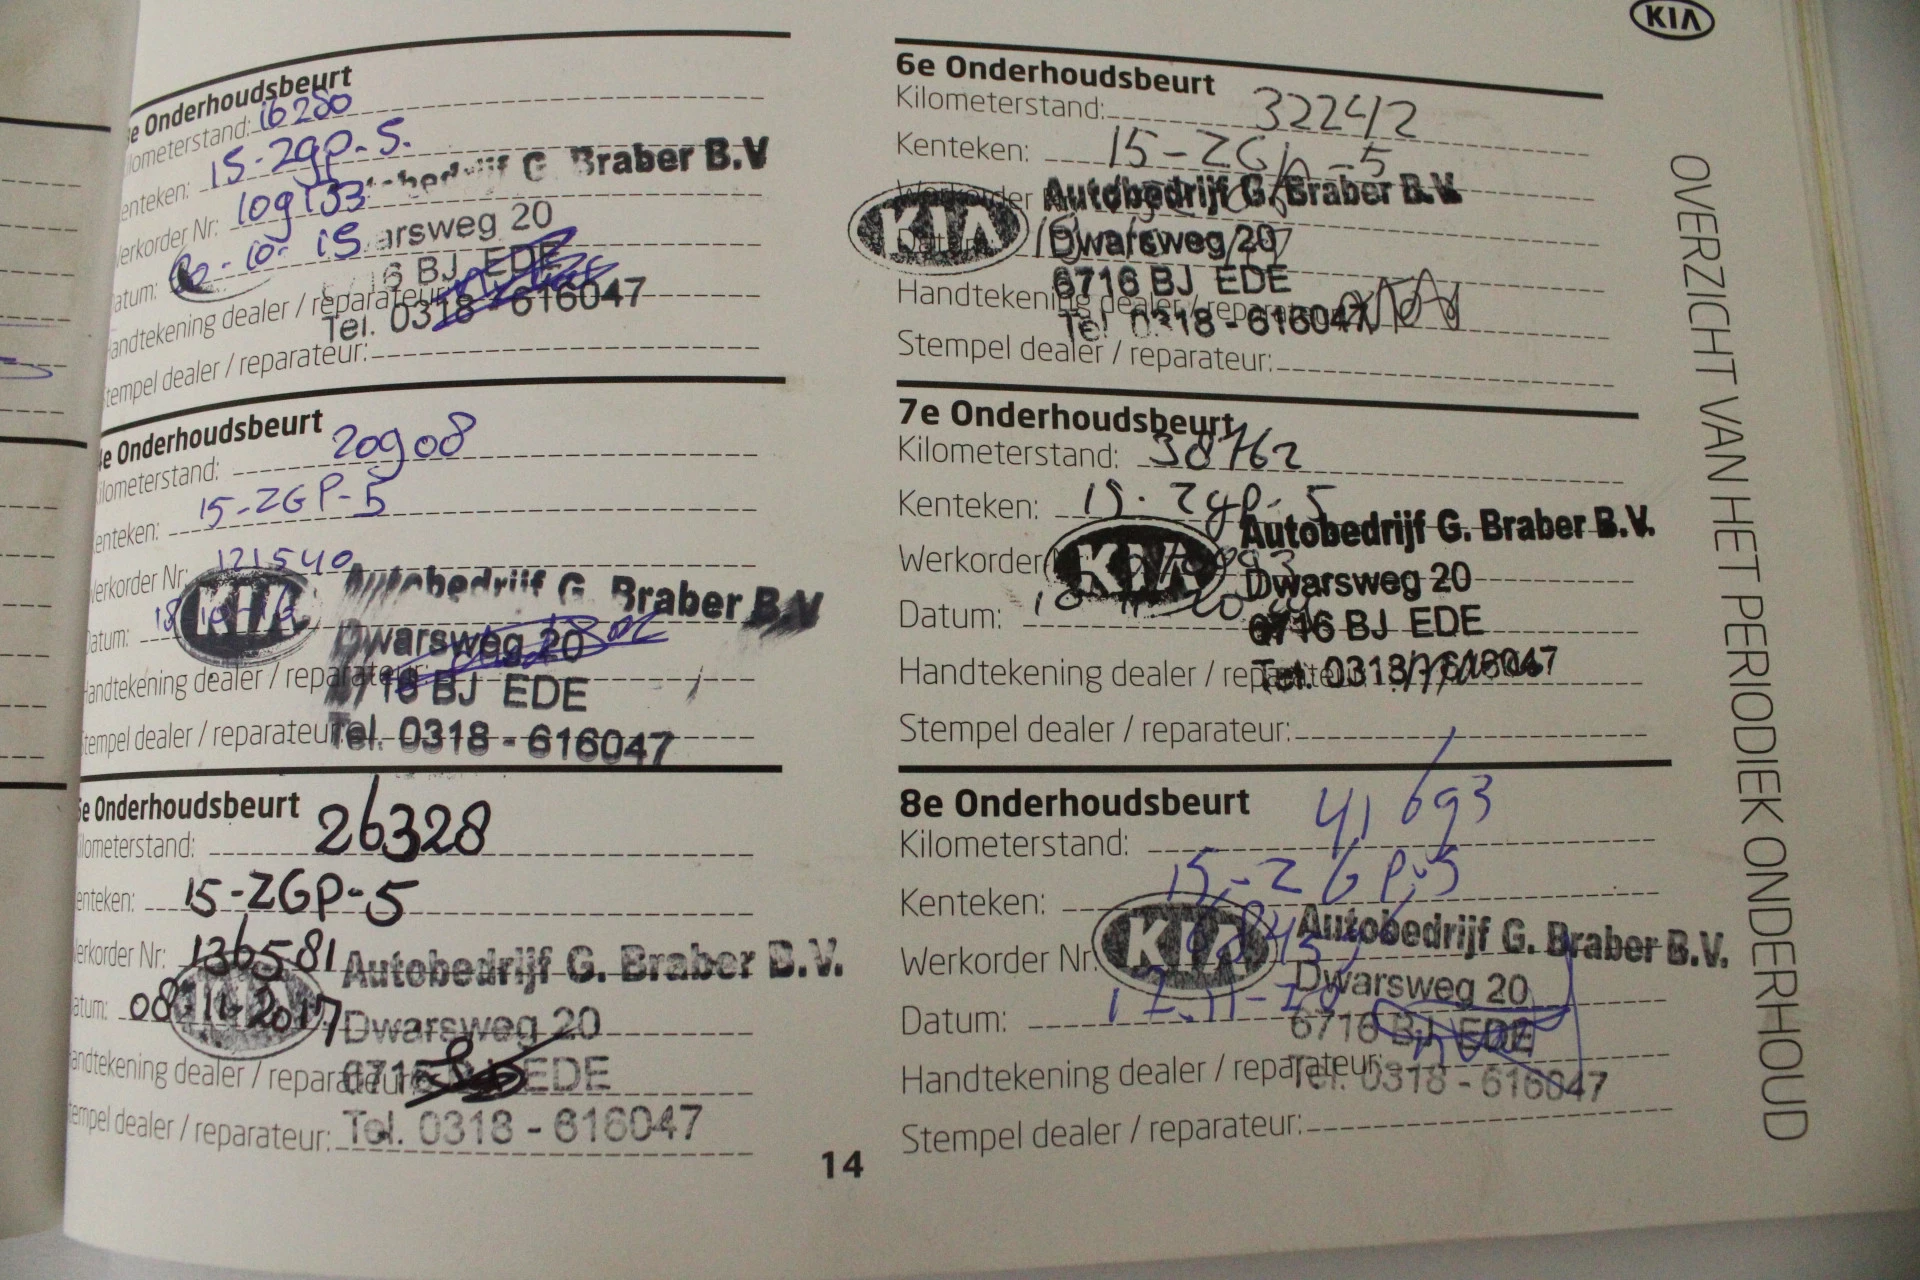 KIA
OVERZICHT VAN HET PERIODIEK ONDERHOUD
e Onderhoudsbeurt
ilometerstand: 16280
enteken: 15-zgp-5.
erkorder Nr: 109133
Autobedrijf G. Braber B.V
atum: -10-15
arsweg 20
6716 BJ EDE
andtekening dealer / reparateur:
Tel. 0318 - 616047
tempel dealer / reparateur:
4e Onderhoudsbeurt
ilometerstand: 20908
enteken: 15-ZGP-5
erkorder Nr: 121540
KIA
Autobedrijf G. Braber B.V
Datum: 18-10-16
Dwarsweg 20
andtekening dealer / reparateur:
6716 BJ EDE
tempel dealer / reparateur:
Tel. 0318 - 616047
5e Onderhoudsbeurt
ilometerstand: 26328
enteken: 15-ZGP-5
erkorder Nr: 136581
KIA
Autobedrijf G. Braber B.V.
atum: 08-11-2017
Dwarsweg 20
andtekening dealer / reparateur:
6716 BJ EDE
tempel dealer / reparateur:
Tel. 0318 - 616047
6e Onderhoudsbeurt
Kilometerstand: 32242
Kenteken: 15-ZGP-5
Werkorder
KIA
Autobedrijf G. Braber B.V.
Datum:
Dwarsweg 20
6716 BJ EDE
Handtekening dealer / reparateur:
Tel. 0318 - 616047
Stempel dealer / reparateur:
7e Onderhoudsbeurt
Kilometerstand: 38762
Kenteken: 15-zgp-5
Autobedrijf G. Braber B.V.
Werkorder
KIA
Dwarsweg 20
Datum:
6716 BJ EDE
Handtekening dealer / reparateur:
Tel. 0318 - 616047
Stempel dealer / reparateur:
8e Onderhoudsbeurt
Kilometerstand: 41693
Kenteken: 15-ZGP-5
Werkorder Nr:
KIA
Autobedrijf G. Braber B.V.
Datum: 17-11-20
Dwarsweg 20
6716 BJ EDE
Handtekening dealer / reparateur:
Tel. 0318 - 616047
Stempel dealer / reparateur:
14